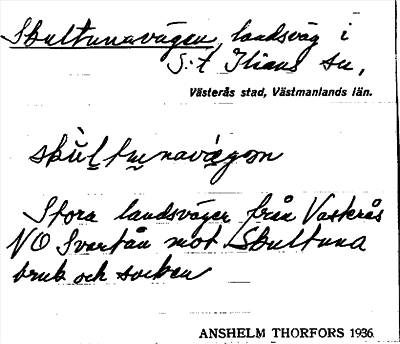 Skultunavägen, landsväg i
S:t Ilians sn,
Västerås stad, Västmanlands län.
skùltunavägən
Stora landsvägen från Västerås
NO Svartån mot Skultuna
bruk och socken
ANSHELM THORFORS 1936